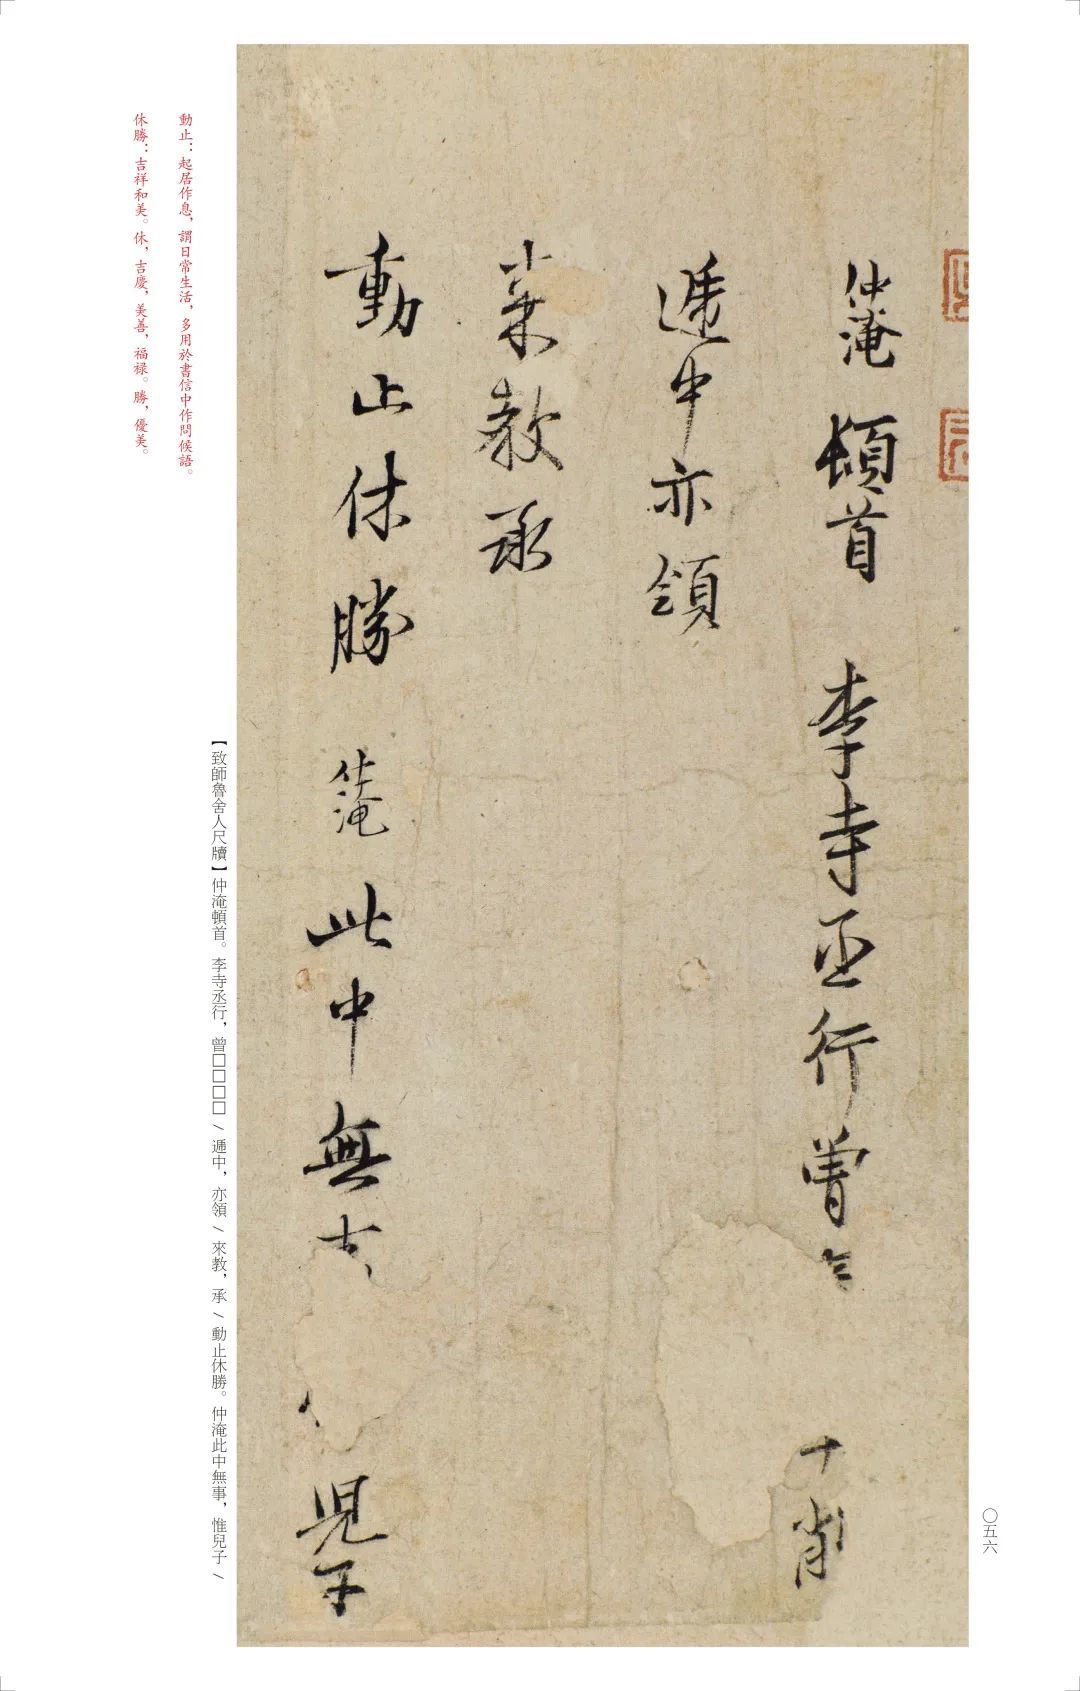 仲淹頓首李寺丞行曾
遞中亦領
來教承
動止休勝仲淹此中無事
兒子
〇五六
【致師魯舍人尺牘】仲淹頓首。李寺丞行，曾□□□□/遞中，亦領/來教，承/動止休勝。仲淹此中無事，惟兒子/
動止：起居作息，謂日常生活，多用於書信中作問候語。
休勝：吉祥和美。休，吉慶，美善，福禄。勝，優美。